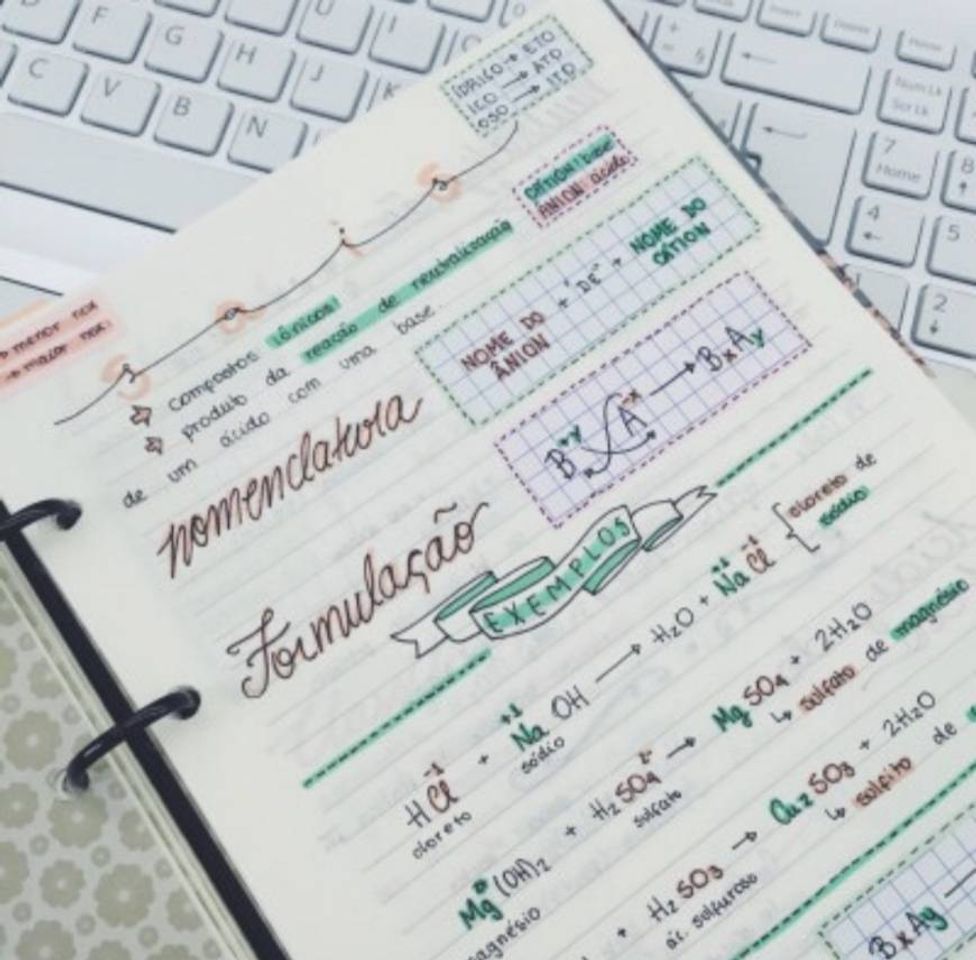 ÍDRICO → ETO
ICO → ATO
OSO → ITO
CÁTION: base
ÂNION: ácido
menor nox
→ maior nox
sais
→ compostos iônicos!
→ produto da reação de neutralização
de um ácido com uma base
NOME DO ÂNION + "DE" + NOME DO CÁTION
nomenclatura
B+y A-x → BxAy
Formulação
EXEMPLOS
HCl-1 + Na+1OH → H2O + Na+1Cl-1 { cloreto de sódio
cloreto sódio
Mg(OH)2 + H2SO4 2- → MgSO4 + 2H2O
sulfato ↳ sulfato de magnésio
+ H2SO3 → Au2SO3 + 2H2O
ác. sulfuroso ↳ sulfito de
BxAy
C
V
B
N
F
G
H
J
K
U
I
Home
Num Lk
Scr Lk
7
Home
8
4
5
2